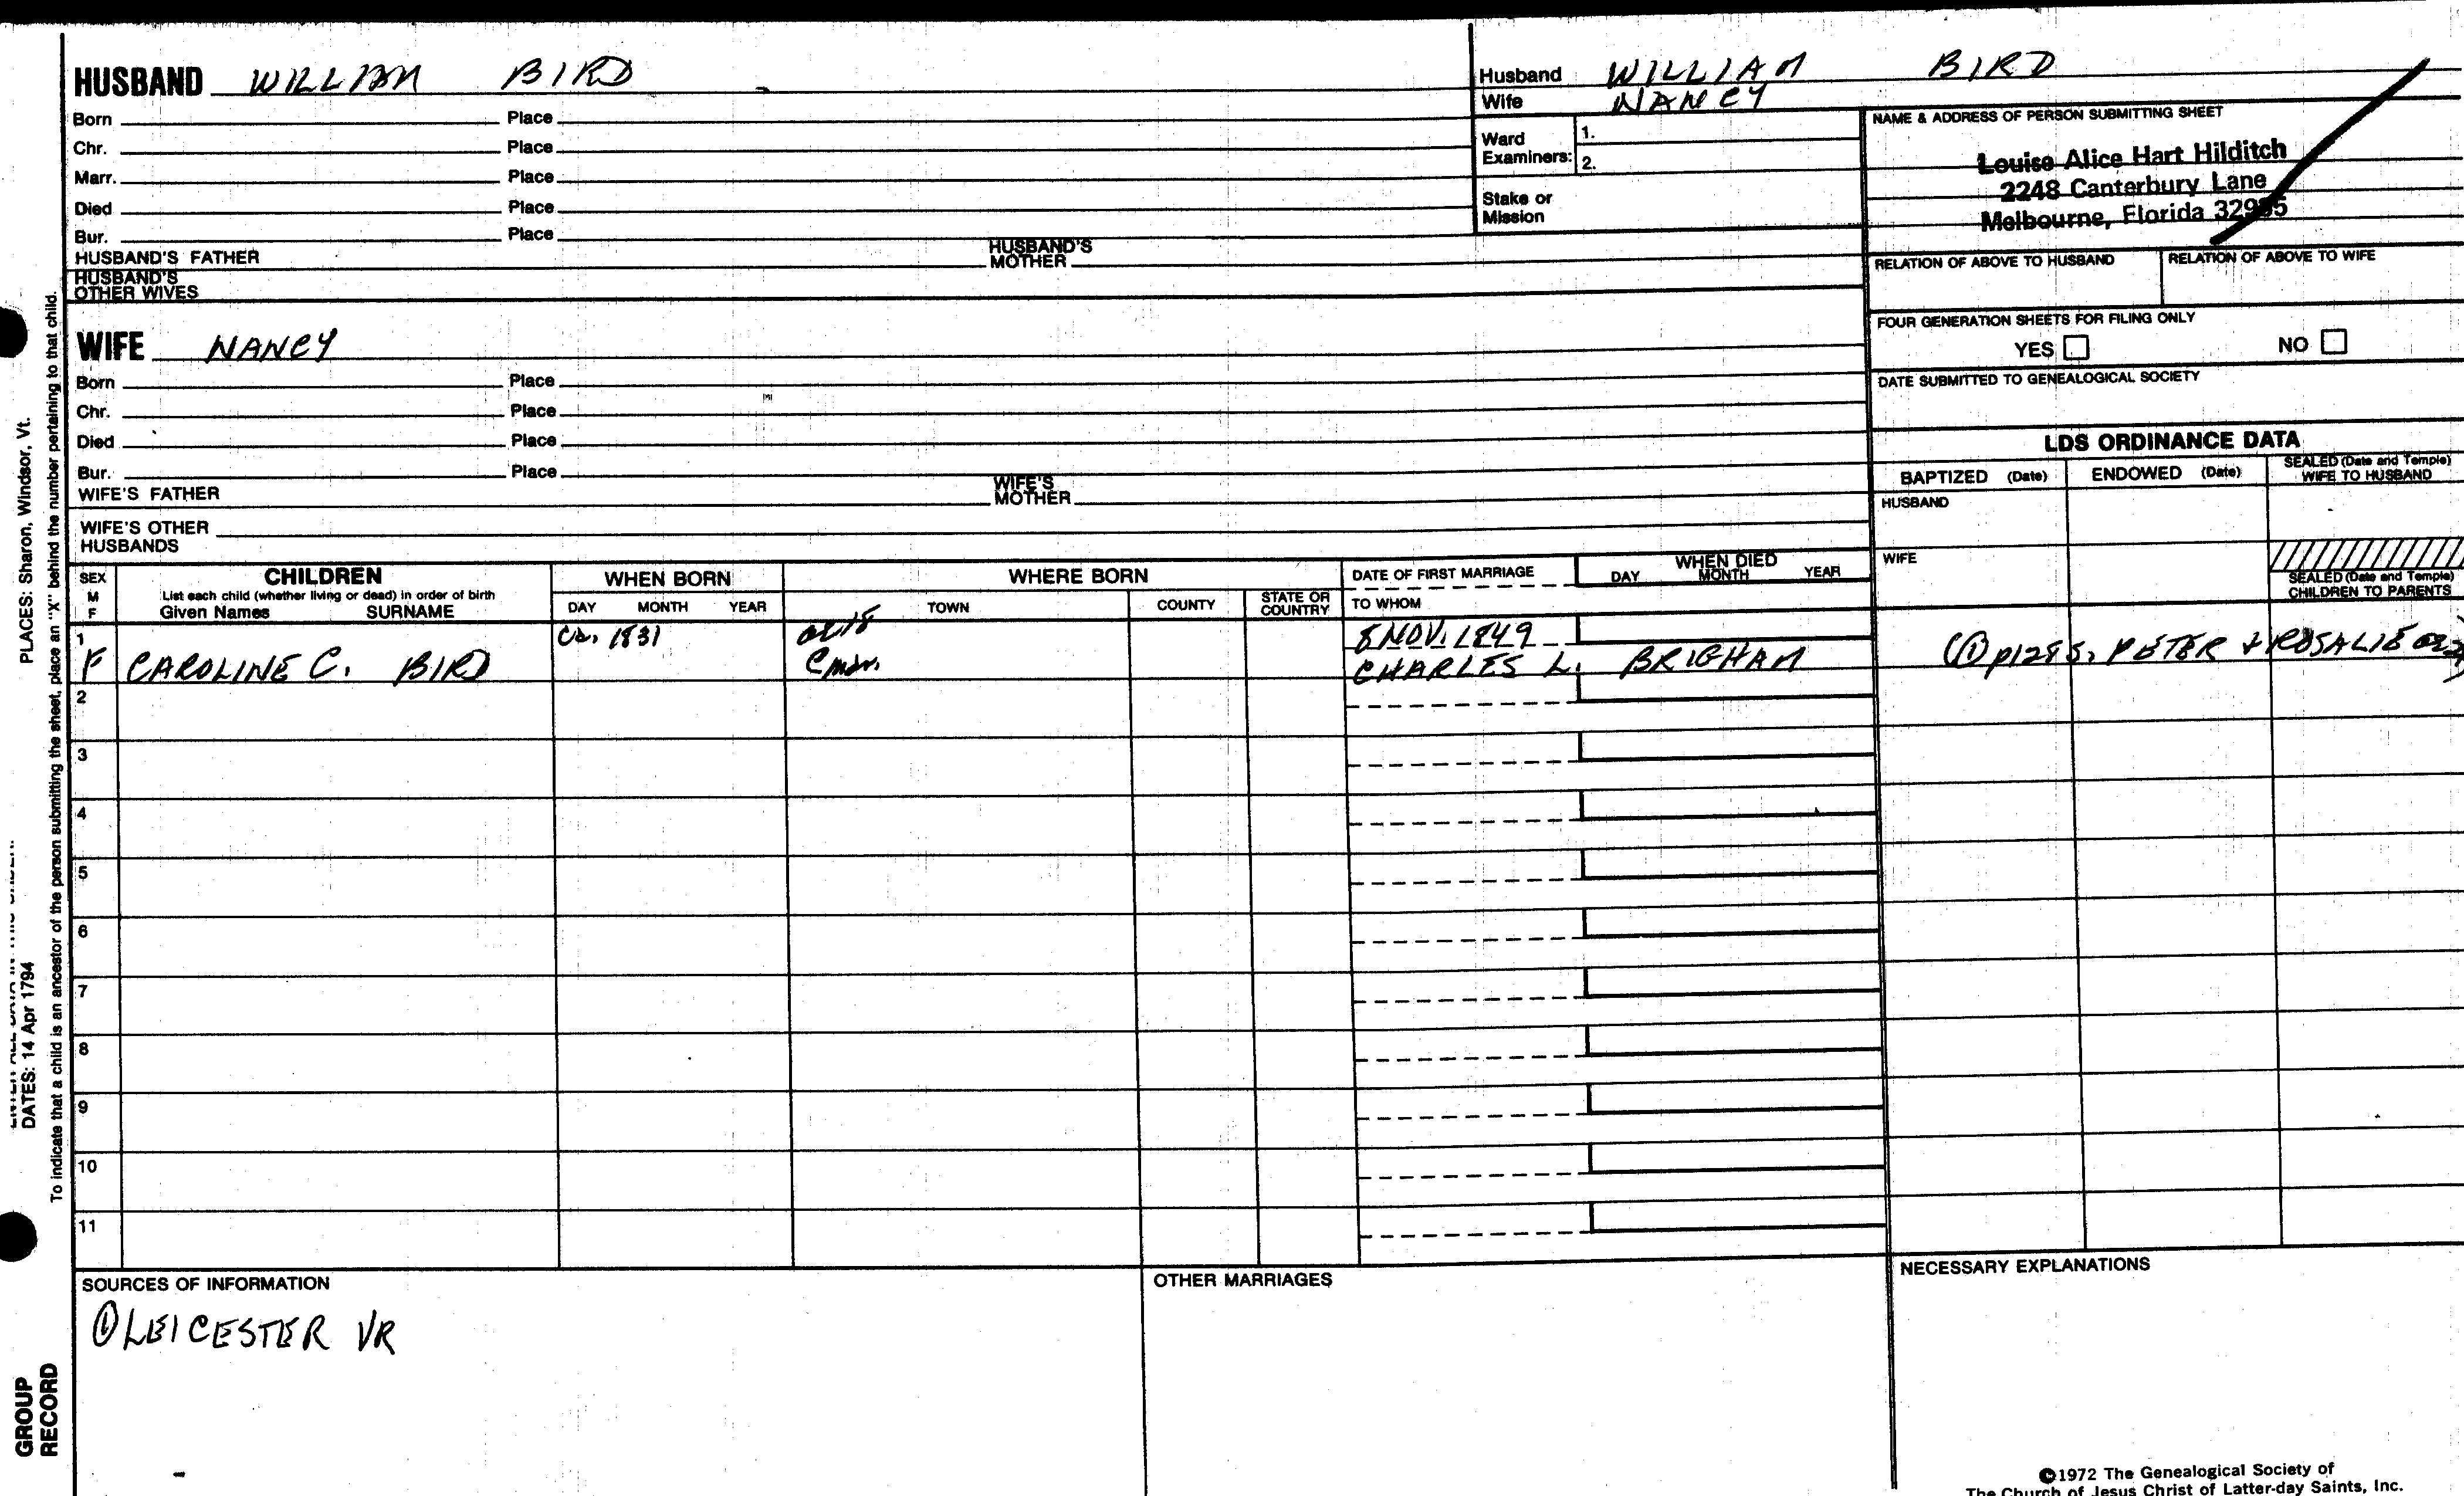 HUSBAND WILLIAM BIRD
Born Place
Chr. Place
Marr. Place
Died Place
Bur. Place
HUSBAND'S FATHER HUSBAND'S MOTHER
HUSBAND'S OTHER WIVES
WIFE NANCY
Born Place
Chr. Place
Died Place
Bur. Place
WIFE'S FATHER WIFE'S MOTHER
WIFE'S OTHER HUSBANDS
Husband WILLIAM BIRD
Wife NANCY
Ward Examiners: 1.
2.
Stake or Mission
NAME & ADDRESS OF PERSON SUBMITTING SHEET
Louise Alice Hart Hilditch
2248 Canterbury Lane
Melbourne, Florida 32935
RELATION OF ABOVE TO HUSBAND RELATION OF ABOVE TO WIFE
FOUR GENERATION SHEETS FOR FILING ONLY
YES NO
DATE SUBMITTED TO GENEALOGICAL SOCIETY
LDS ORDINANCE DATA
BAPTIZED (Date) ENDOWED (Date) SEALED (Date and Temple) WIFE TO HUSBAND
HUSBAND
WIFE
SEALED (Date and Temple) CHILDREN TO PARENTS
SEX M F
CHILDREN
List each child (whether living or dead) in order of birth
Given Names SURNAME
WHEN BORN
DAY MONTH YEAR
WHERE BORN
TOWN COUNTY STATE OR COUNTRY
DATE OF FIRST MARRIAGE
TO WHOM
WHEN DIED
DAY MONTH YEAR
1 ca. 1831 8 NOV. 1849
F CAROLINE C. BIRD CHARLES L. BRIGHAM PETER + ROSALIE
2
3
4
5
6
7
8
9
10
11
SOURCES OF INFORMATION
① LEICESTER VR
OTHER MARRIAGES
NECESSARY EXPLANATIONS
©1972 The Genealogical Society of
The Church of Jesus Christ of Latter-day Saints, Inc.
PLACES: Sharon, Windsor, Vt.
DATES: 14 Apr 1794
To indicate that a child is an ancestor of the person submitting the sheet, place an "X" behind the number pertaining to that child.
GROUP
RECORD